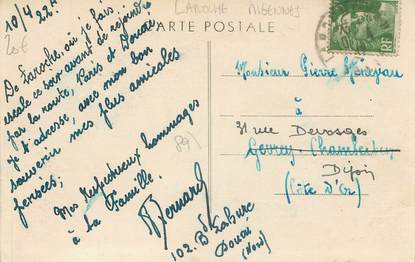 LAROCHE MIGENNES
CARTE POSTALE
20€
10/4
22H
De Laroche où je fais
escale ce soir avant de rejoindre
par la route, Paris et Douai
je t'adresse, avec mon bon
souvenir mes plus amicales
pensées;
Mes Respectueux hommages
à la Famille.
Bernard
102. Bd
Douai
(Nord)
Monsieur Pierre
à
31 rue Devosges
Gevrey-Chambertin
Dijon
(Côte d'Or)